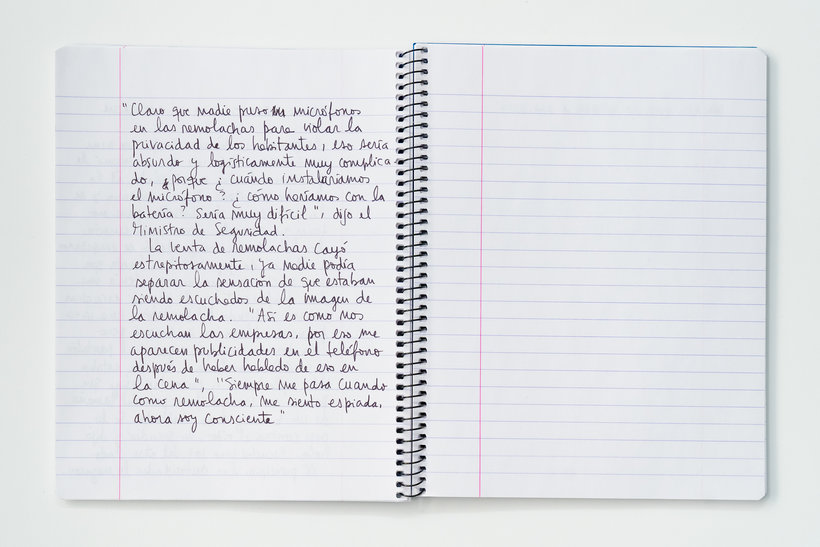 "Claro que nadie puso los micrófonos
en las remolachas para violar la
privacidad de los habitantes, eso sería
absurdo y logísticamente muy complica-
do, porque ¿cuándo instalaríamos
el micrófono? ¿cómo haríamos con la
batería? Sería muy difícil", dijo el
Ministro de Seguridad.
La venta de remolachas cayó
estrepitosamente, ya nadie podía
separar la sensación de que estaban
siendo escuchados de la imagen de
la remolacha. "Así es como nos
escuchan las empresas, por eso me
aparecen publicidades en el teléfono
después de haber hablado de eso en
la cena", "Siempre me pasa cuando
como remolacha, me siento espiada,
ahora soy consciente"